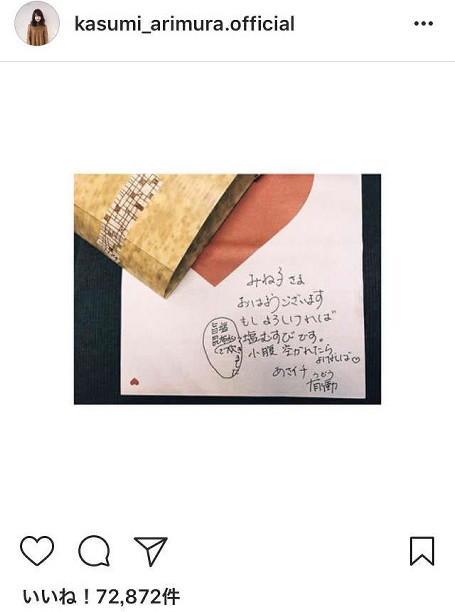 kasumi_arimura.official
みね子さま
おはようございます
もしよろしければ
塩むすびです。
小腹 空かれたら
よければ♡
あさイチ
うどう
有働
いいね！72,872件